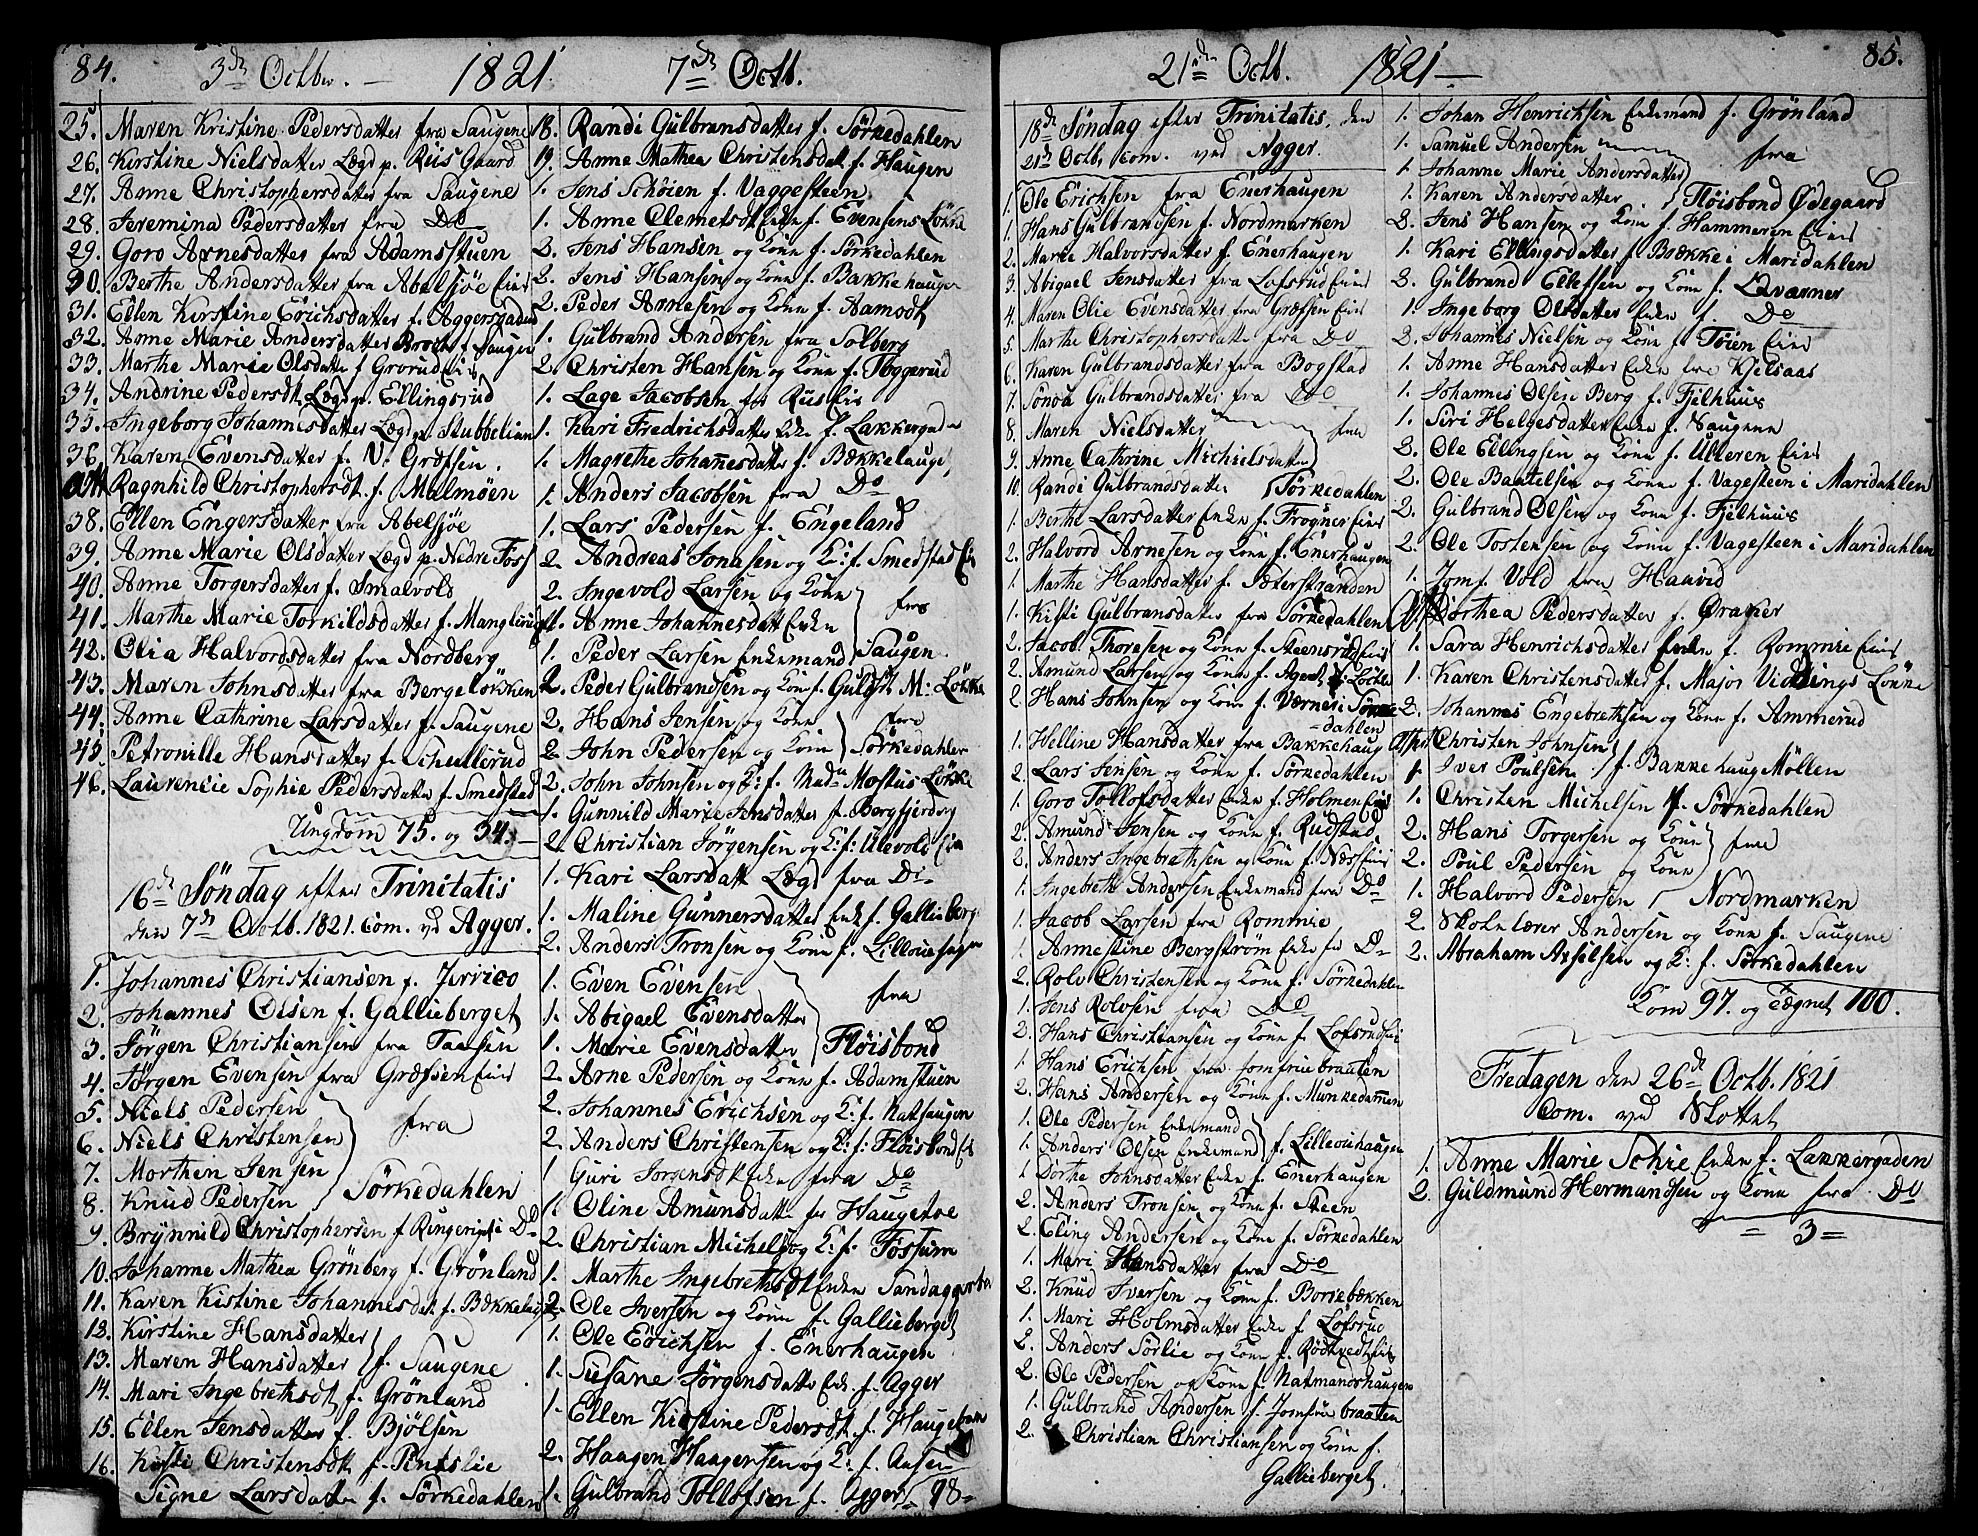 84. 3de Octbr. — 1821. 7de Octb.
25. Maren Kristine Pedersdatter fra Saugene
26. Kirstine Nielsdatter Lægd p. Riis Gaard
27. Anne Christophersdatter fra Saugene
28. Jeremina Pedersdatter fra Do
29. Goro Arnesdatter fra Adamsstuen
30. Berthe Andersdatter fra Abelsjøe Eier
31. Ellen Kirstine Erichsdatter f. Aggersgaden
32. Anne Marie Andersdatter Broch f. Saugen
33. Marthe Marie Olsdatter f. Grorud Eie
34. Andrine Pedersdt. Lægd p. Ellingsrud
35. Ingeborg Johannisdatter Lægd p. Stubbelian
36. Karen Evensdatter f. N. Græfsen.
Ragnhild Christophersdt. f. Malmöen
38. Ellen Engersdatter fra Abelsjøe
39. Anne Marie Olsdatter Lægd p. Nedre Foss
40. Anne Torgersdatter f. Smalvold
41. Marthe Marie Torkildsdatter f. Manglerud
42. Olia Halvordsdatter fra Nordberg
43. Maren Johnsdatter fra Bergeløkken
44. Anne Cathrine Larsdatter f. Saugene
45. Petronille Hansdatter f. Schullerud
46. Laurencie Sophie Pedersdatter f. Smedstad
Ungdom 75. og 34. —
16de Søndag efter Trinitatis
den 7de Octb. 1821. Com. vd Agger.
1. Johannes Christiansen f. Jerrico
2. Johannes Olsen f. Gallieberget
3. Jörgen Christiansen fra Taasen
4. Jörgen Evensen fra Græfsen Eier
5. Niels Pedersen
6. Niels Christensen fra
7. Morthen Jensen
8. Knud Pedersen Sörkedahlen
9. Brynnild Christophersen f. Ringerige i Do
10. Johanne Mathea Grönberg f. Grönland
11. Karen Kistine Johannesdt. f. Bækkelaget
12. Kirstine Hansdatter
13. Maren Hansdatter f. Saugene
14. Mari Ingebrethsdt. f. Grönland
15. Ellen Jensdatter f. Bjölsen
16. Kisti Christensdt. f. Pinkslie
Signe Larsdatter f. Sörkedahlen
18. Randi Gulbransdatter f. Sörkedahlen
19. Anne Mathea Christensdat. f. Haugen
1. Jens Schöien f. Vaggesteen
1. Anne Clemetsdt Enke f. Evensens Løkke
2. Jens Hansen og Kone f. Sörkedahlen
2. Jens Hansen og Kone f. Bakkehaugen
2. Peder Arnesen og Kone f. Aamodt
1. Gulbrand Andersen fra Solberg
2. Christen Hansen og Kone f. Toggerud
1. Lage Jacobsen fra Riis Eie
1. Kari Fredrichsdatter Enke f. Lakkergaden
1. Magrethe Johannesdatter f. Bækkelauget
1. Anders Jacobsen fra Do
1. Lars Pedersen f. Engeland
2. Andreas Jonasen og K: f. Smedstad Eie
2. Ingevold Larsen og Kone
1. Anne Johannesdatt Enke fra
1. Peder Larsen Enkemand Saugen
2. Peder Gulbrandsen og Kone f. Guldsk. M: Løkke
2. Hans Jensen og Kone fra
2. John Pedersen og Kone Sörkedahlen
2. John Johnsen og K: f. Madm. Mostus Løkke
1. Gunnild Marie Jensdatter f. Bergfjerding
2. Christian Jörgensen og K: f: Ulevold Eie
1. Kari Larsdatt Lægd fra Do
1. Maline Gunnersdatter Enke f. Gallieberg
2. Anders Tronsen og Kone f. Lilloiehagen
1. Even Evensen
1. Abigael Evensdatter fra
1. Marie Evensdatter Fløisbond
2. Arne Pedersen og Kone f. Adamstuen
2. Johannes Erichsen og K: f. Natsaugen
2. Anders Christensen og K: f: Fløisbond Eie
1 Guri Jorgensdt Enke fra Do
1. Oline Amundsdatter fra Haugetoe
2. Christian Michels. og K: f. Fossum
1. Marthe Ingebrethsdt Enke Sandaggerbr
2. Ole Iversen og Kone f. Gallieberget
1. Ole Erichsen f. Enerhaugen
1. Susane Jörgensdatter Enk. f. Agger
1. Ellen Kirstine Pedersdt. f. Haugeben
2. Haagen Haagensen og K: f. Aasen
1. Gulbrand Tollofsen f. Agger 78—
21de Octb. 1821— 85.
18de Søndag efter Trinitatis, den
21de Octb. com. ved Agger.
1. Ole Erichsen fra Enerhaugen
1. Hans Gulbrandsen f. Nordmarken
2. Marthe Halvorsdatter f. Enerhaugen
3. Abigael Jensdatter fra Lofsrud Eier
4. Maren Olie Evensdatter fra Græfsen Eier
5. Marthe Christophersdatter fra Do
6. Karen Gulbrandsdatter fra Bogstad
7. Tonoa Gulbrandsdatter fra Do
8. Maren Nielsdatter fra
9. Anne Cathrine Michielsdatter
10. Randi Gulbrandsdatter Sörkedahlen
1. Berthe Larsdatter Enke f. Frogner Eier
2. Halvord Arnesen og Kone f. Enerhaugen
1. Marthe Hansdatter f. Sæterstranden
1. Kisti Gulbransdatter fra Sörkedahlen
2. Jacob Thoresen og Kone f. Steensrud Eier
2. Amund Larsen og Kone f. Agent Löcken
2. Hans Johnsen og Kone f. Værner i Sörke
=dahlen
1. Helline Hansdatter fra Bakkehaug
2. Lars Jensen og Kone f. Sörkedahlen
1. Goro Tollofsdatter Enke f. Holmen Eier
2. Amund Jensen og Kone f. Rudstad
2. Anders Ingebrethsen og Kone f. Næss Eier
1. Ingebreth Andersen Enkemand fra Do
1. Jacob Larsen fra Rommie
1. Anne Stine Bergström Enke fra Do
2. Rolv Christensen og Kone f. Sörkedahlen
1. Jens Rolvsen fra Do
2. Hans Christiansen og Kone f. Lofsrud Ei
1. Hans Erichsen fra Jomfruebraaten
2. Hans Andersen og Kone f. Munkedammen
1. Ole Pedersen Enkemand
1. Anders Olsen Enkemand f. Lilleoiehaugen
1. Dorthe Johnsdatter Enke f. Enerhaugen
2. Anders Tronsen og Kone f. Steen
2. Eling Andersen og Kone f. Sörkedahlen
1. Mari Hansdatter fra Do
2. Knud Iversen og Kone f. Boriebækken
1. Mari Holmsdatter Enke f. Lofsrud
2. Anders Sörlie og Kone f. Rödtvedt Eie
2. Ole Pedersen og Kone f. Natmandshaugen
1. Gulbrand Andersen f. Jomfruebraaten
2. Christian Christiansen og Kone f.
Gallieberget
1. Johan Henrichsen Enkemand f. Grönland
1. Samuel Andersen
1. Johanne Marie Andersdatter fra
1. Karen Andersdatter Fløisbond Ødegaard
2. Jens Hansen og Kone f. Hammeren Eier
1. Kari Ellingsdatter f. Bække i Maridahlen
2. Gulbrand Ellefsen og Kone f. Qværner
1. Ingeborg Olsdatter Enke f. Do
2. Johannes Nielsen og Kone f. Töien Eier
1. Anne Hansdatter Enke fra Kjelsaas
1. Johannes Olsen Berg f. Fjelhuus
1. Siri Helgesdatter Enke f. Saugene
2. Ole Ellingsen og Kone f. Ulleren Eier
2. Ole Bautelsen og Kone f. Vagesteen i Maridahlen
2. Gulbrand Olsen og Kone f. Fjelhuus
2. Ole Tostensen og Kone f. Vagesteen i Maridahlen
1. Jomf. Vold fra Haavid
Dorthea Pedersdatter f. Øraker
1. Sara Henrichsdatter Enke f. Rommie Eier
1. Karen Christensdatter f. Major Vidings Lønne
2. Johannes Engebrethsen og Kone f. Ammerud
Christen Johnsen
1. Iver Poulsen f. Bakkehaug Möllen
1. Christen Michelsen f. Sörkedahlen
2. Hans Torgersen og Kone fra
2. Poul Pedersen og Kone
1. Halvord Pedersen Nordmarken
2. Skolelærer Andersen og Kone f. Saugene
2. Abraham Axselsen og K: f. Sörkedahlen
Com 97. og Tegnet 100.
Fredagen den 26de Octb. 1821
Com. ved Slottet
1. Anne Marie Schie Enke f. Lakkergaden
2. Guldmund Hermandsen og Kone fra Do
= 3 =